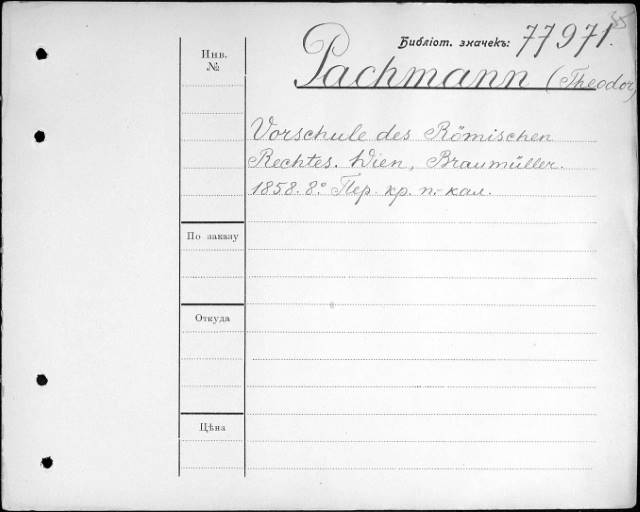 Библіот. значекъ: 77971.
Инв.
№
Pachmann (Theodor)
Vorschule des Römischen
Rechtes. Wien, Braumüller.
1858. 8.° Пер. кр. п.-кал.
По заказу
Откуда
Цѣна